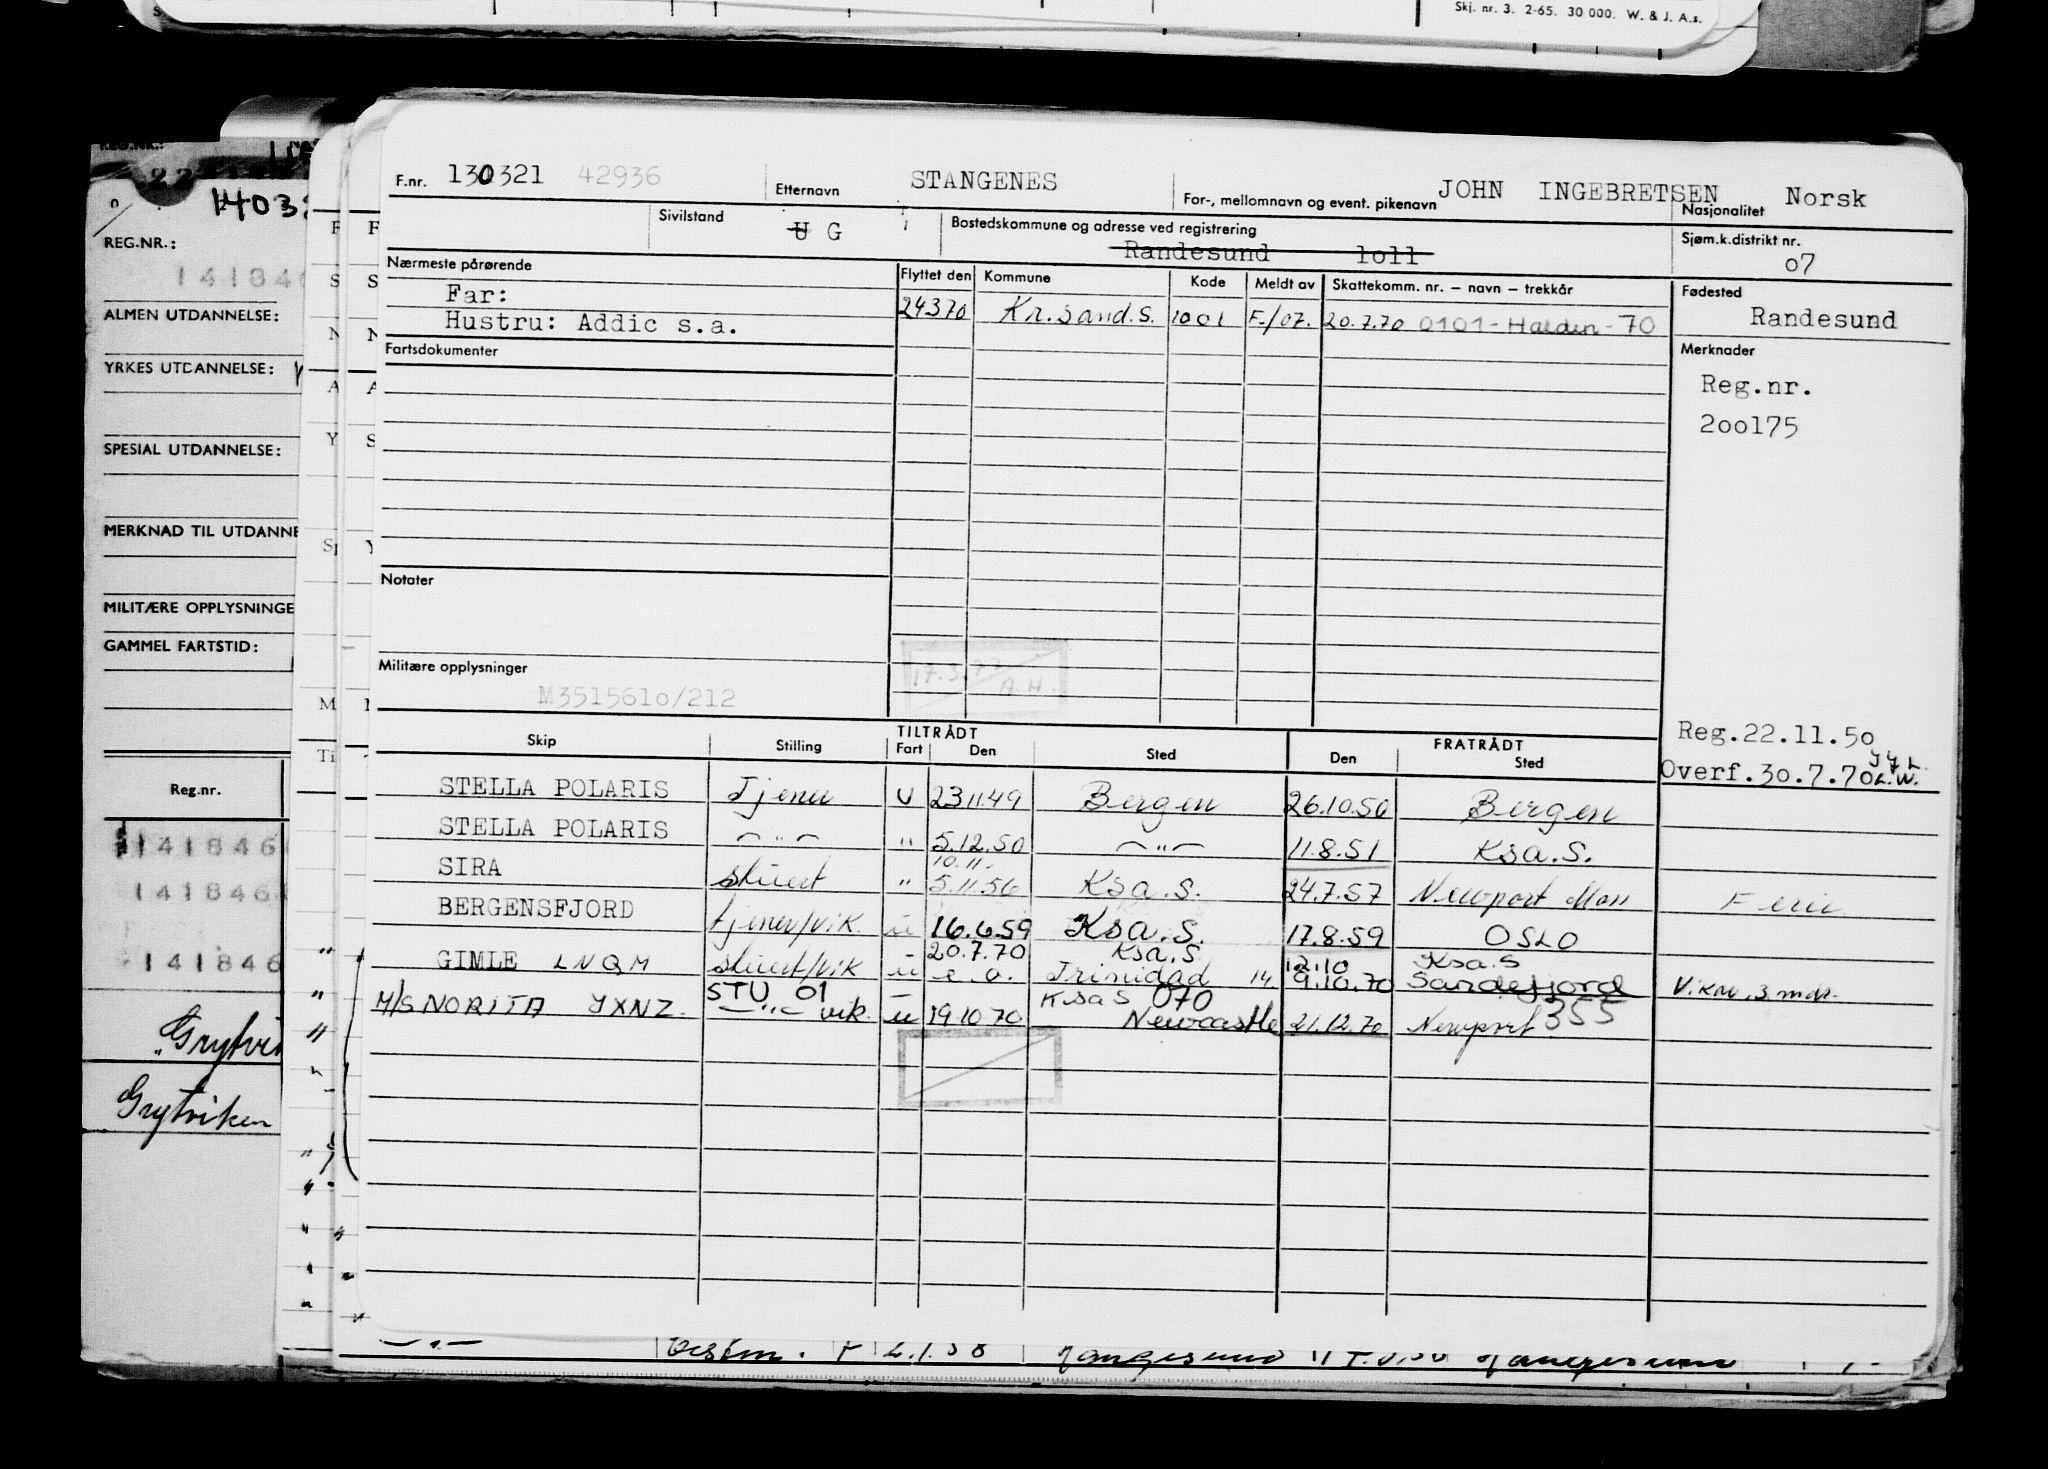 Skj. nr. 3. 2-65. 30 000. W. & J. A.s.
REG.NR.:
1403
REG.NR.:
14184
ALMEN UTDANNELSE:
YRKES UTDANNELSE:
SPESIAL UTDANNELSE:
MERKNAD TIL UTDANNE
MILITÆRE OPPLYSNINGE
GAMMEL FARTSTID:
Reg.nr.
141846
141846
141846
Grytvi
Grytviken
F.nr. 130321 42936 Etternavn STANGENES For-, mellomnavn og event. pikenavn JOHN INGEBRETSEN Nasjonalitet Norsk
Sivilstand U G Bostedskommune og adresse ved registrering Randesund 1011 Sjøm.k.distrikt nr. 07
Nærmeste pårørende Flyttet den Kommune Kode Meldt av Skattekomm. nr. – navn – trekkår Fødested
Far: 24370 Kr.sand.S. 1001 F./07. 20.7.70 0101-Halden-70 Randesund
Hustru: Addic s.a.
Fartsdokumenter Merknader
Reg.nr.
200175
Notater
Militære opplysninger
17.3.77 A.H.
M3515610/212
Reg.22.11.50 J.L.
Overf.30.7.70 L.W.
Skip Stilling TILTRÅDT Fart Den Sted FRATRÅDT Den Sted
STELLA POLARIS Tjener U 23.11.49 Bergen 26.10.50 Bergen
STELLA POLARIS — " — " 5.12.50 — " — 11.8.51 Ksa.S.
10.11.
SIRA stuert " 5.11.56 Ksa.S. 24.7.57 Newport Mon Ferie
BERGENSFJORD tjener/vik. u 16.6.59 Ksa.S. 17.8.59 OSLO
20.7.70 Ksa.S 12.10 Ksa.S
GIMLE LNQM stuert/vik u e.o. Trinidad 14 9.10.70 Sandefjord Vikar, 3 mdr.
STU 01 Ksa S 070 355
M/S NORITA JXNZ. — " — vik. u 19.10.70 Newcastle 21.12.70 Newport